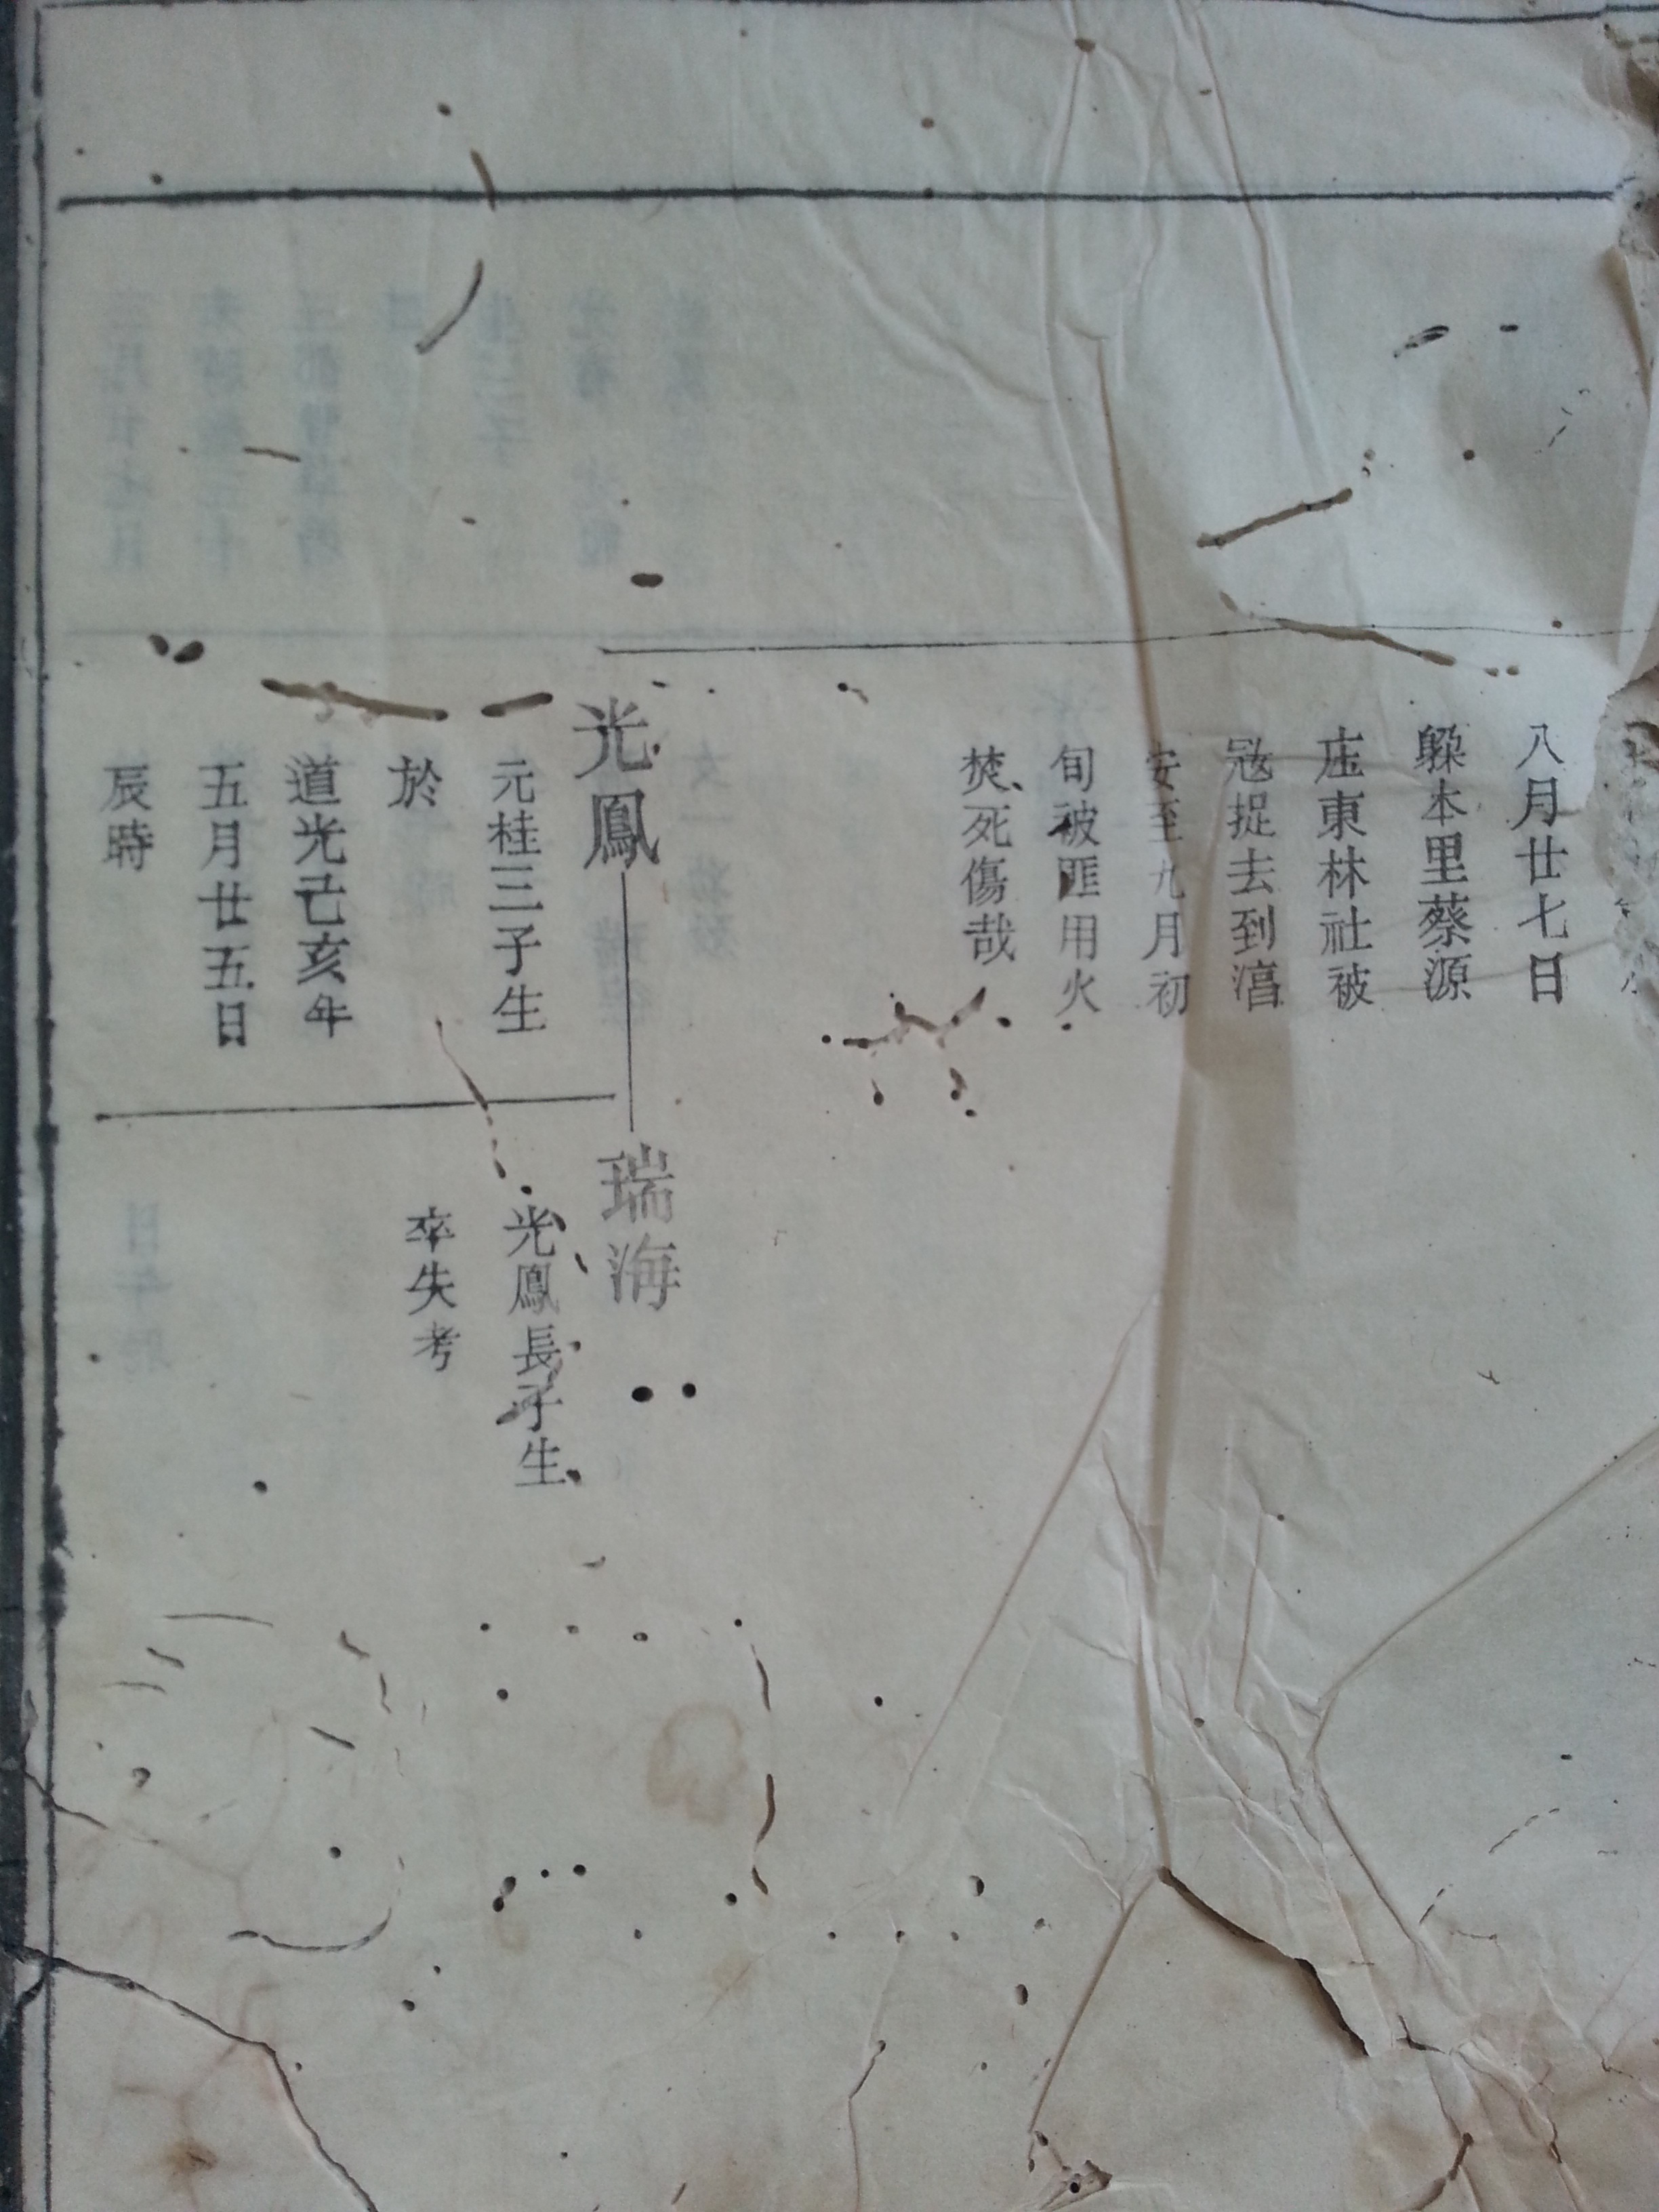 八月廿七日
躲本里蔡源
庄東林社被
寇捉去到濸
安至九月初
旬被匪用火
焚死傷哉
光鳳
元桂三子生
於
道光己亥年
五月廿五日
辰時
瑞海
光鳳長子生
卒失考